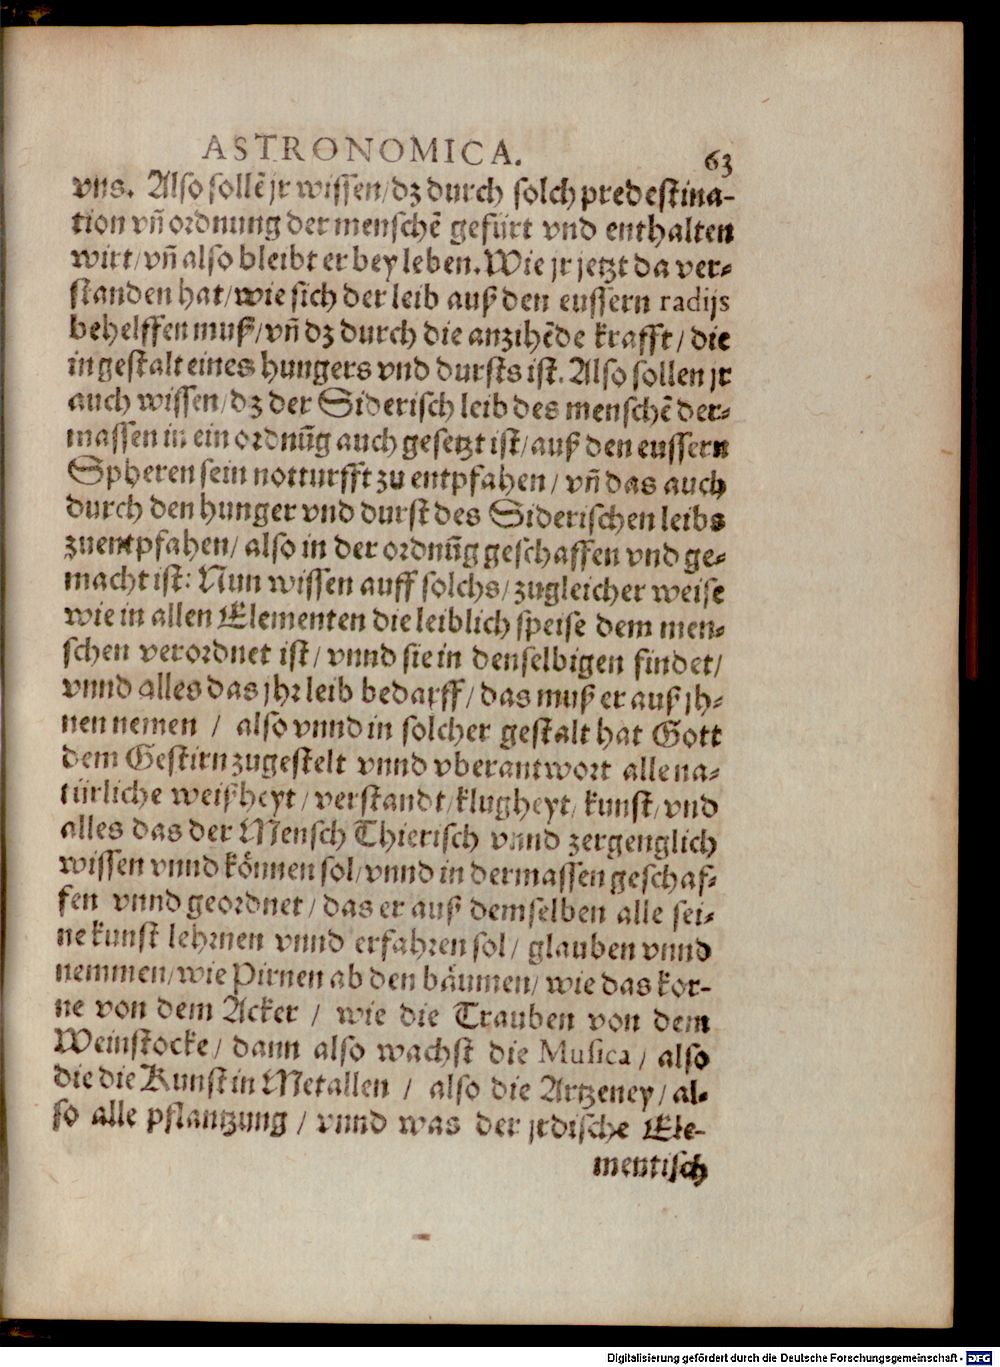 ASTRONOMICA. 63
vns. Also sollẽ jr wissen/dz durch solch predestina-
tion vñ ordnung der menschẽ gefürt vnd enthalten
wirt/vñ also bleibt er bey leben. Wie jr jetzt da ver-
standen hat/wie sich der leib auß den eussern radijs
behelffen muß/vñ dz durch die anzihẽde krafft/die
in gestalt eines hungers vnd dursts ist. Also sollen jr
auch wissen/dz der Siderisch leib des menschẽ der-
massen in ein ordnũg auch gesetzt ist/auß den eussern
Spheren sein notturfft zu entpfahen/vñ das auch
durch den hunger vnd durst des Siderischen leibs
zuentpfahen/also in der ordnũg geschaffen vnd ge-
macht ist: Nun wissen auff solchs/zugleicher weise
wie in allen Elementen die leiblich speise dem men-
schen verordnet ist/vnnd sie in denselbigen findet/
vnnd alles das jhr leib bedarff/das muß er auß jh-
nen nemen / also vnnd in solcher gestalt hat Gott
dem Gestirn zugestelt vnnd vberantwort alle na-
türliche weißheyt/verstandt/klugheyt/kunst/vnd
alles das der Mensch Thierisch vnnd zergenglich
wissen vnnd können sol/vnnd in dermassen geschaf-
fen vnnd geordnet/das er auß demselben alle sei-
ne kunst lehrnen vnnd erfahren sol/glauben vnnd
nemmen/wie Pirnen ab den bäumen/wie das kor-
ne von dem Acker / wie die Trauben von dem
Weinstocke/dann also wachst die Musica/also
die die Kunst in Metallen / also die Artzeney/al-
so alle pflantzung / vnnd was der jrdische Ele-
mentisch
Digitalisierung gefördert durch die Deutsche Forschungsgemeinschaft - DFG